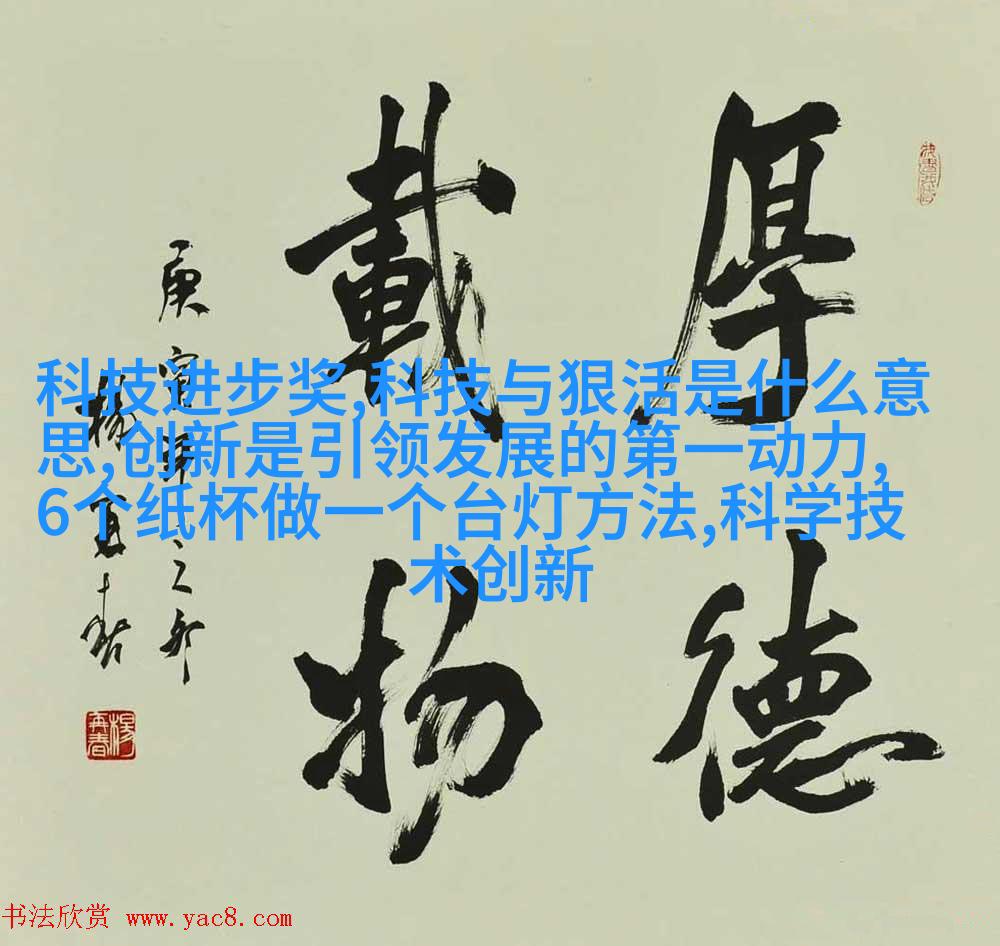 厚德
載物
庚寅
楊再春
科技进步奖,科技与狠活是什么意
思,创新是引领发展的第一动力,
6个纸杯做一个台灯方法,科学技
术创新
楊再春
书法欣赏 www.yac8.com